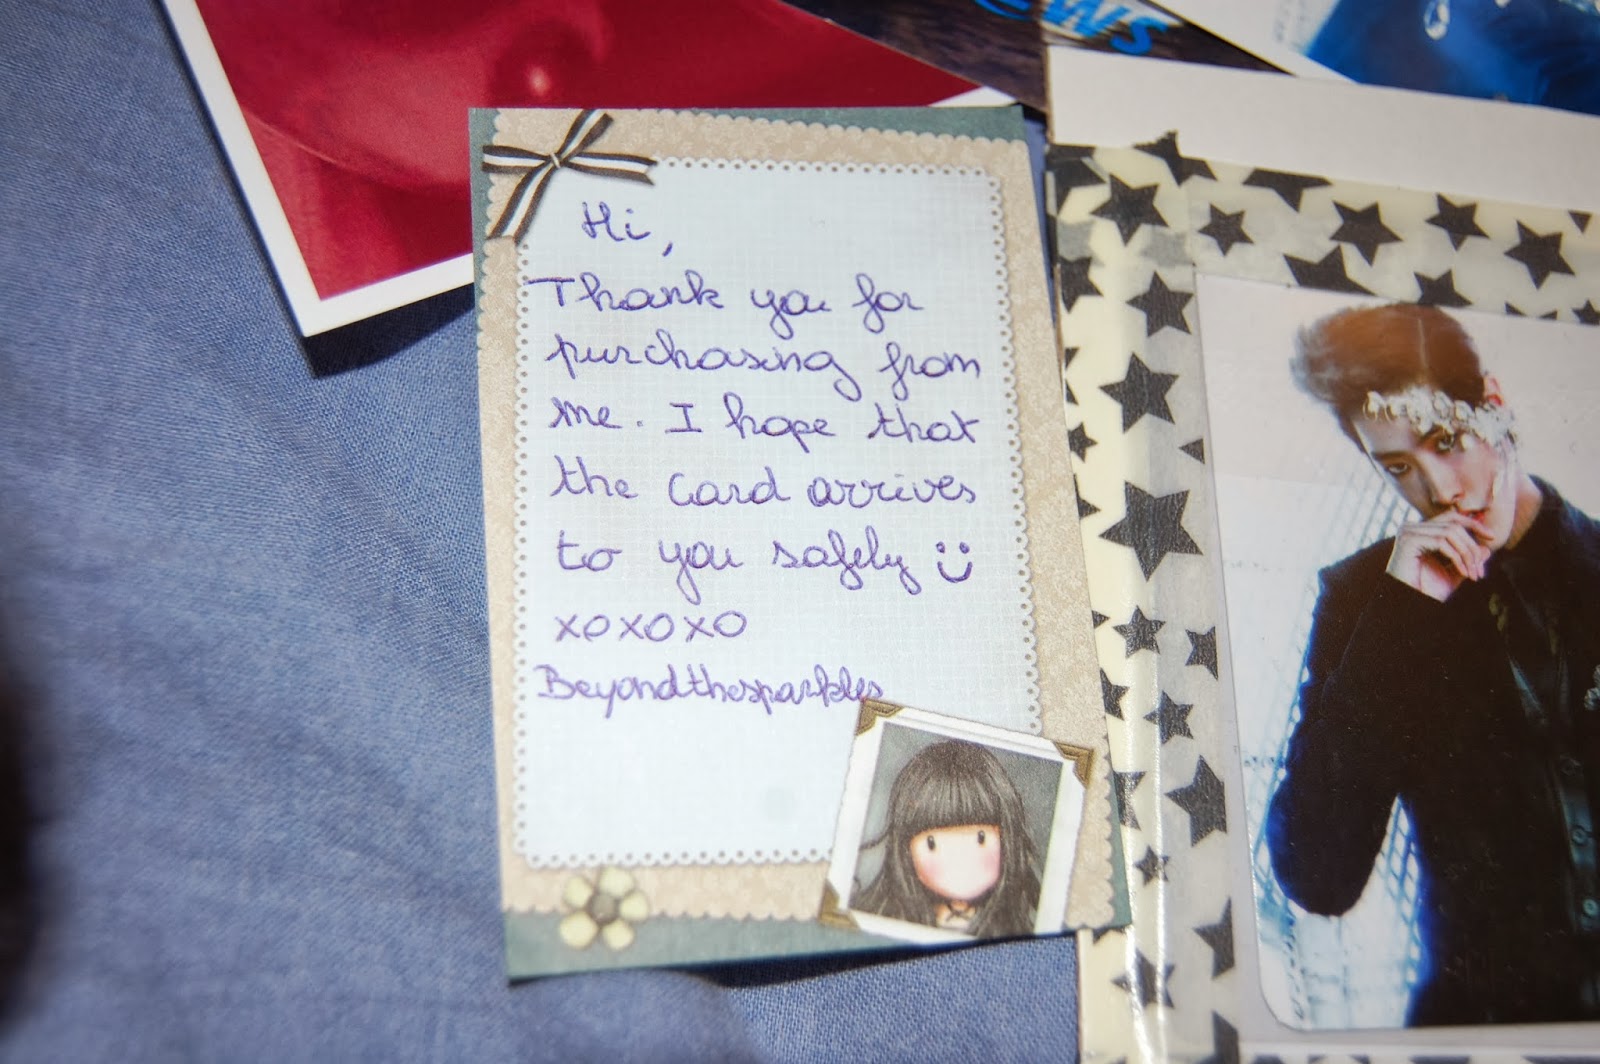 Hi,
Thank you for
purchasing from
me. I hope that
the card arrives
to you safely
xoxoxo
Beyondthesparkles